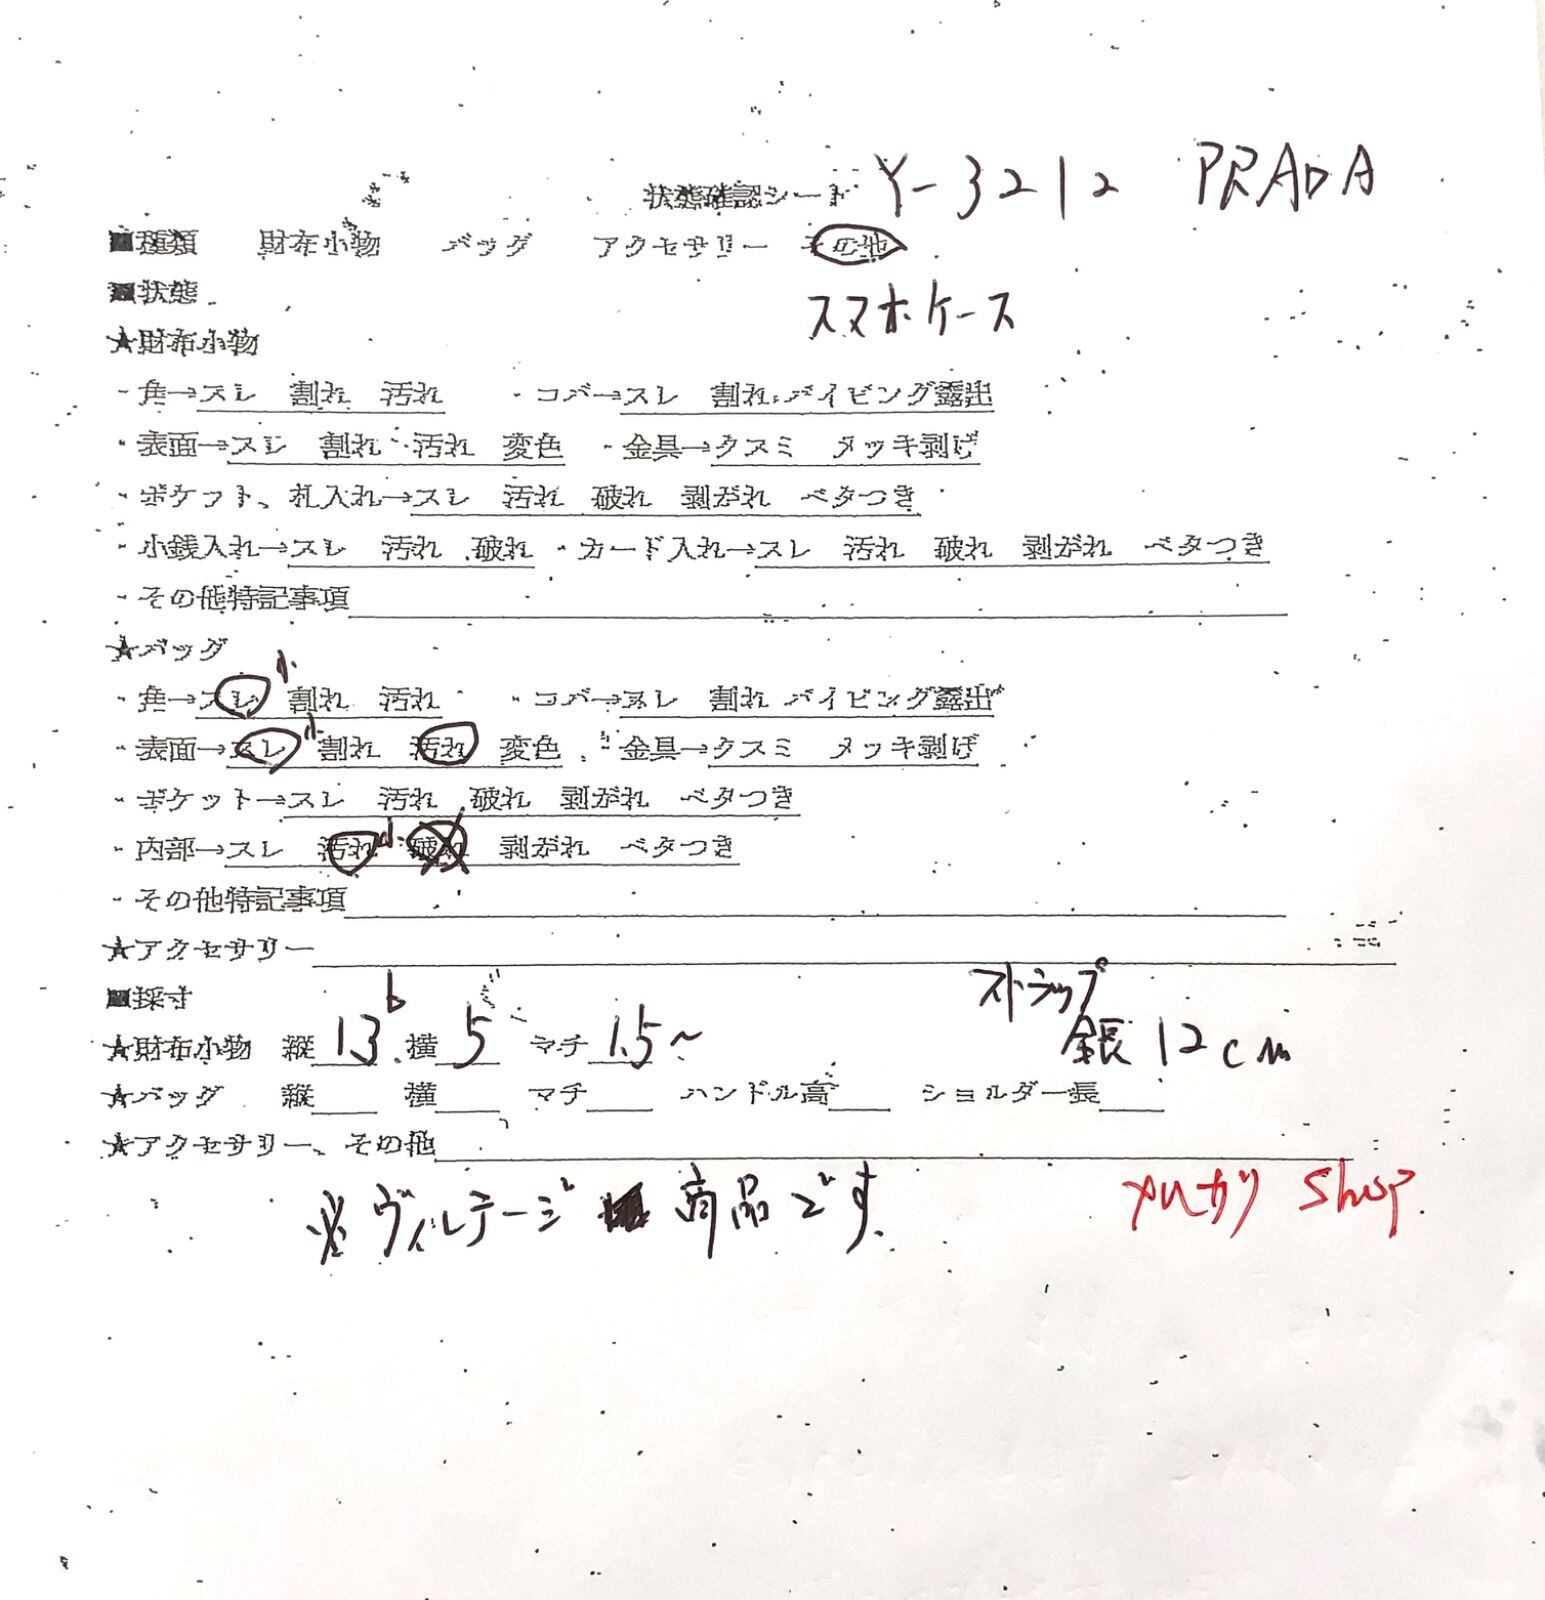 状態確認シート Y-3212 PRADA
■種類 財布小物 バッグ アクセサリー その他
■状態 スマホケース
★財布小物
・角→スレ 割れ 汚れ ・コバ→スレ 割れ パイピング露出
・表面→スレ 割れ 汚れ 変色 ・金具→クスミ メッキ剥げ
・ポケット、札入れ→スレ 汚れ 破れ 剥がれ ベタつき
・小銭入れ→スレ 汚れ 破れ ・カード入れ→スレ 汚れ 破れ 剥がれ ベタつき
・その他特記事項
★バッグ
・角→スレ 小 割れ 汚れ ・コバ→スレ 割れ パイピング露出
・表面→スレ 小 割れ 汚れ 変色 ・金具→クスミ メッキ剥げ
・ポケット→スレ 汚れ 破れ 剥がれ ベタつき
・内部→スレ 汚れ 小 破れ 剥がれ ベタつき
・その他特記事項
★アクセサリー
■採寸 ストラップ
★財布小物 縦13 横5 マチ1.5~ 全長12cm
★バッグ 縦 横 マチ ハンドル高 ショルダー長
★アクセサリー、その他
※ヴィンテージ 商品です. メルカリ shop.